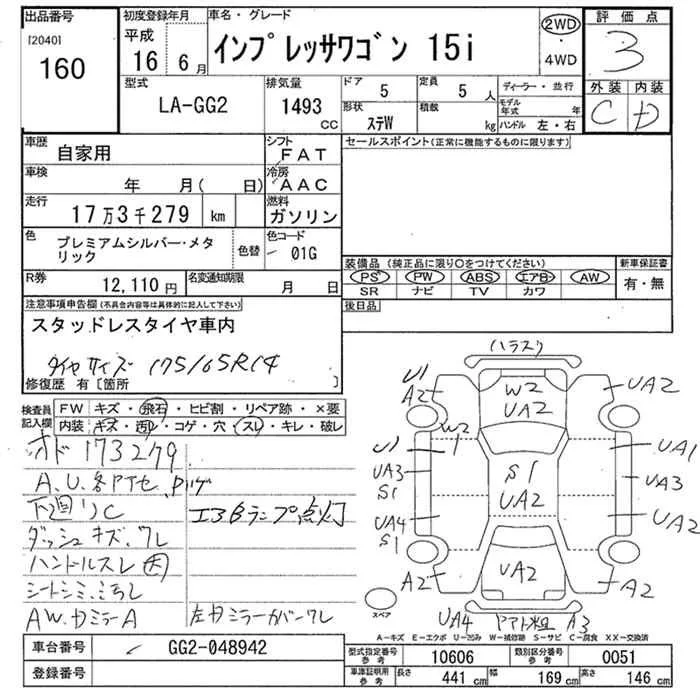 出品番号
[2040]
160
初度登録年月
平成
16 6月
車名・グレード
インプレッサワゴン 15i
2WD
・
4WD
評価点
3
外装 内装
C D
型式
LA-GG2
排気量
1493
CC
ドア 5
形状 ステW
定員 5 人
積載 kg
ディーラー・並行
モデル年式 年
ハンドル 左・右
車歴
自家用
シフト
FAT
車検
年 月( 日)
冷房
AAC
走行
17万3千279 km
燃料
ガソリン
色
プレミアムシルバー・メタリック
色替
色コード
01G
R券
12,110円
名変通知期限
月 日
セールスポイント(正常に機能するものに限ります)
装備品(純正品に限り○をつけてください)
PS PW ABS エアB AW
SR ナビ TV カワ
新車保証書
有・無
後日品
注意事項申告欄(不具合内容等は具体的に記入して下さい)
スタッドレスタイヤ車内
タイヤサイズ 175/65R14
修復歴 有〔箇所 〕
検査員記入欄
FW キズ・飛石・ヒビ割・リペア跡・×要
内装 キズ・汚レ・コゲ・穴・スレ・キレ・破レ
オド 173279
A.U.各Pイセ
下廻りC
エアBランプ点灯
ダッシュキズ.ワレ
ハンドルスレ 大
シートシミ.ミラレ
AW.カミラーA
左カミラーカバーワレ
(ハラスリ)
U1
A2
W2
UA2
UA2
U1
W2
UA1
UA3
S1
S1
UA2
UA3
UA4
S1
UA2
A2
UA2
A2
スペア
UA4
A3
A-キズ E-エクボ U-凹み W-補修跡 S-サビ C-腐食 XX-交換済
車台番号
GG2-048942
登録番号
型式指定番号 参考 10606
類別区分番号 参考 0051
車庫証明用 参考 長さ 441 cm 幅 169 cm 高さ 146 cm